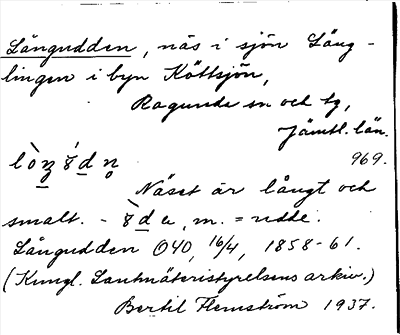 Långudden, näs i sjön Lång-
lingen i byn Köttsjön,
Ragunda sn och tg,
Jämtl. län.
969.
Näset är långt och
smalt. - m. = udde.
Långudden O40, 16/4, 1858-61.
(Kungl. Lantmäteristyrelsens arkiv.)
Bertil Flemström 1937.